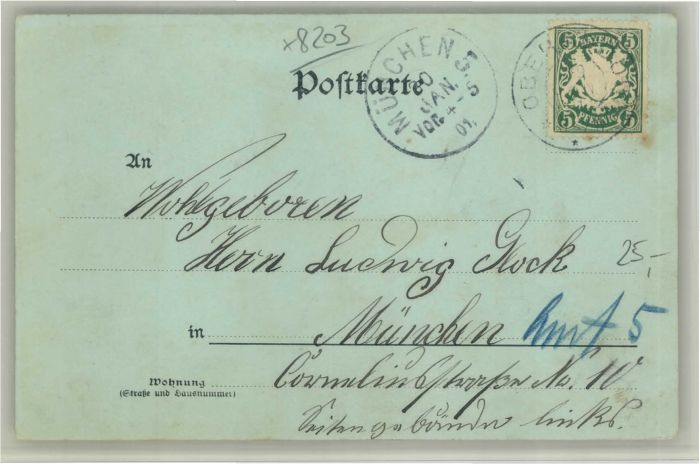 +8203
Postkarte
MÜNCHEN 5.
JAN.
VOR. 4-5
01.
OBER
5 BAYERN 5
5 PFENNIG 5
An
Wohlgeboren
Herrn Ludwig Glock
25,-
in München
5
Wohnung
(Straße und Hausnummer)
Corneliusstraße No. 10
Seitengebäude links.